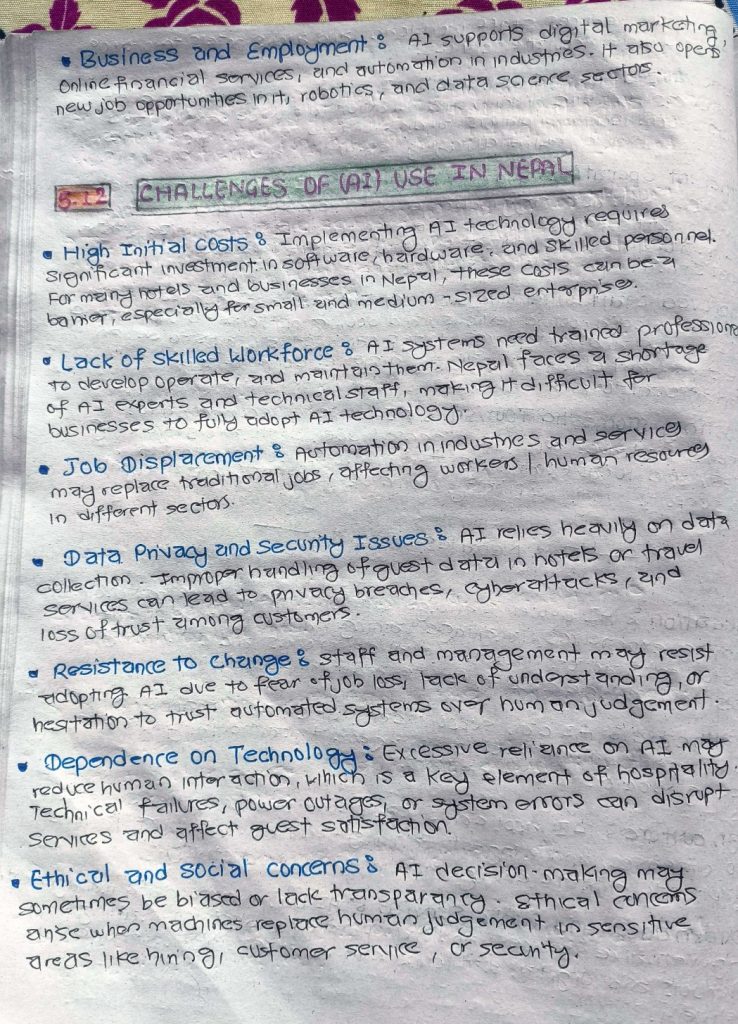 • Business and Employment : AI supports digital marketing,
Online financial services, and automation in industries. It also opens
new job opportunities in it, robotics, and data science sectors.
5.12 CHALLENGES OF (AI) USE IN NEPAL
• High Initial costs : Implementing AI technology requires
significant investment in software, hardware, and skilled personnel.
For many hotels and businesses in Nepal, these costs can be a
barrier, especially for small and medium-sized enterprises.
• Lack of skilled workforce : AI systems need trained profession
to develop operate, and maintain them. Nepal faces a shortage
of AI experts and technical staff, making it difficult for
businesses to fully adopt AI technology.
• Job Displacement : Automation in industries and services
may replace traditional jobs, affecting workers / human resources
in different sectors.
• Data Privacy and Security Issues : AI relies heavily on data
collection. Improper handling of guest data in hotels or travel
services can lead to privacy breaches, cyberattacks, and
loss of trust among customers.
• Resistance to change : staff and management may resist
adopting AI due to fear of job loss, lack of understanding, or
hesitation to trust automated systems over human judgement.
• Dependence on Technology : Excessive reliance on AI may
reduce human interaction, which is a key element of hospitality.
Technical failures, power outages, or system errors can disrupt
services and affect guest satisfaction.
• Ethical and social concerns : AI decision-making may
sometimes be biased or lack transparancy. Ethical concerns
arise when machines replace human judgement in sensitive
areas like hiring, customer service, or security.